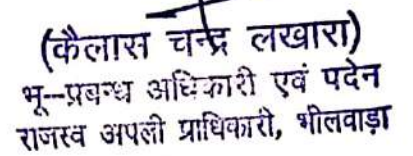 (कैलास चन्द्र लखारा)
भू--प्रबन्ध अधिकारी एवं पदेन
राजस्व अपली प्राधिकारी, भीलवाड़ा